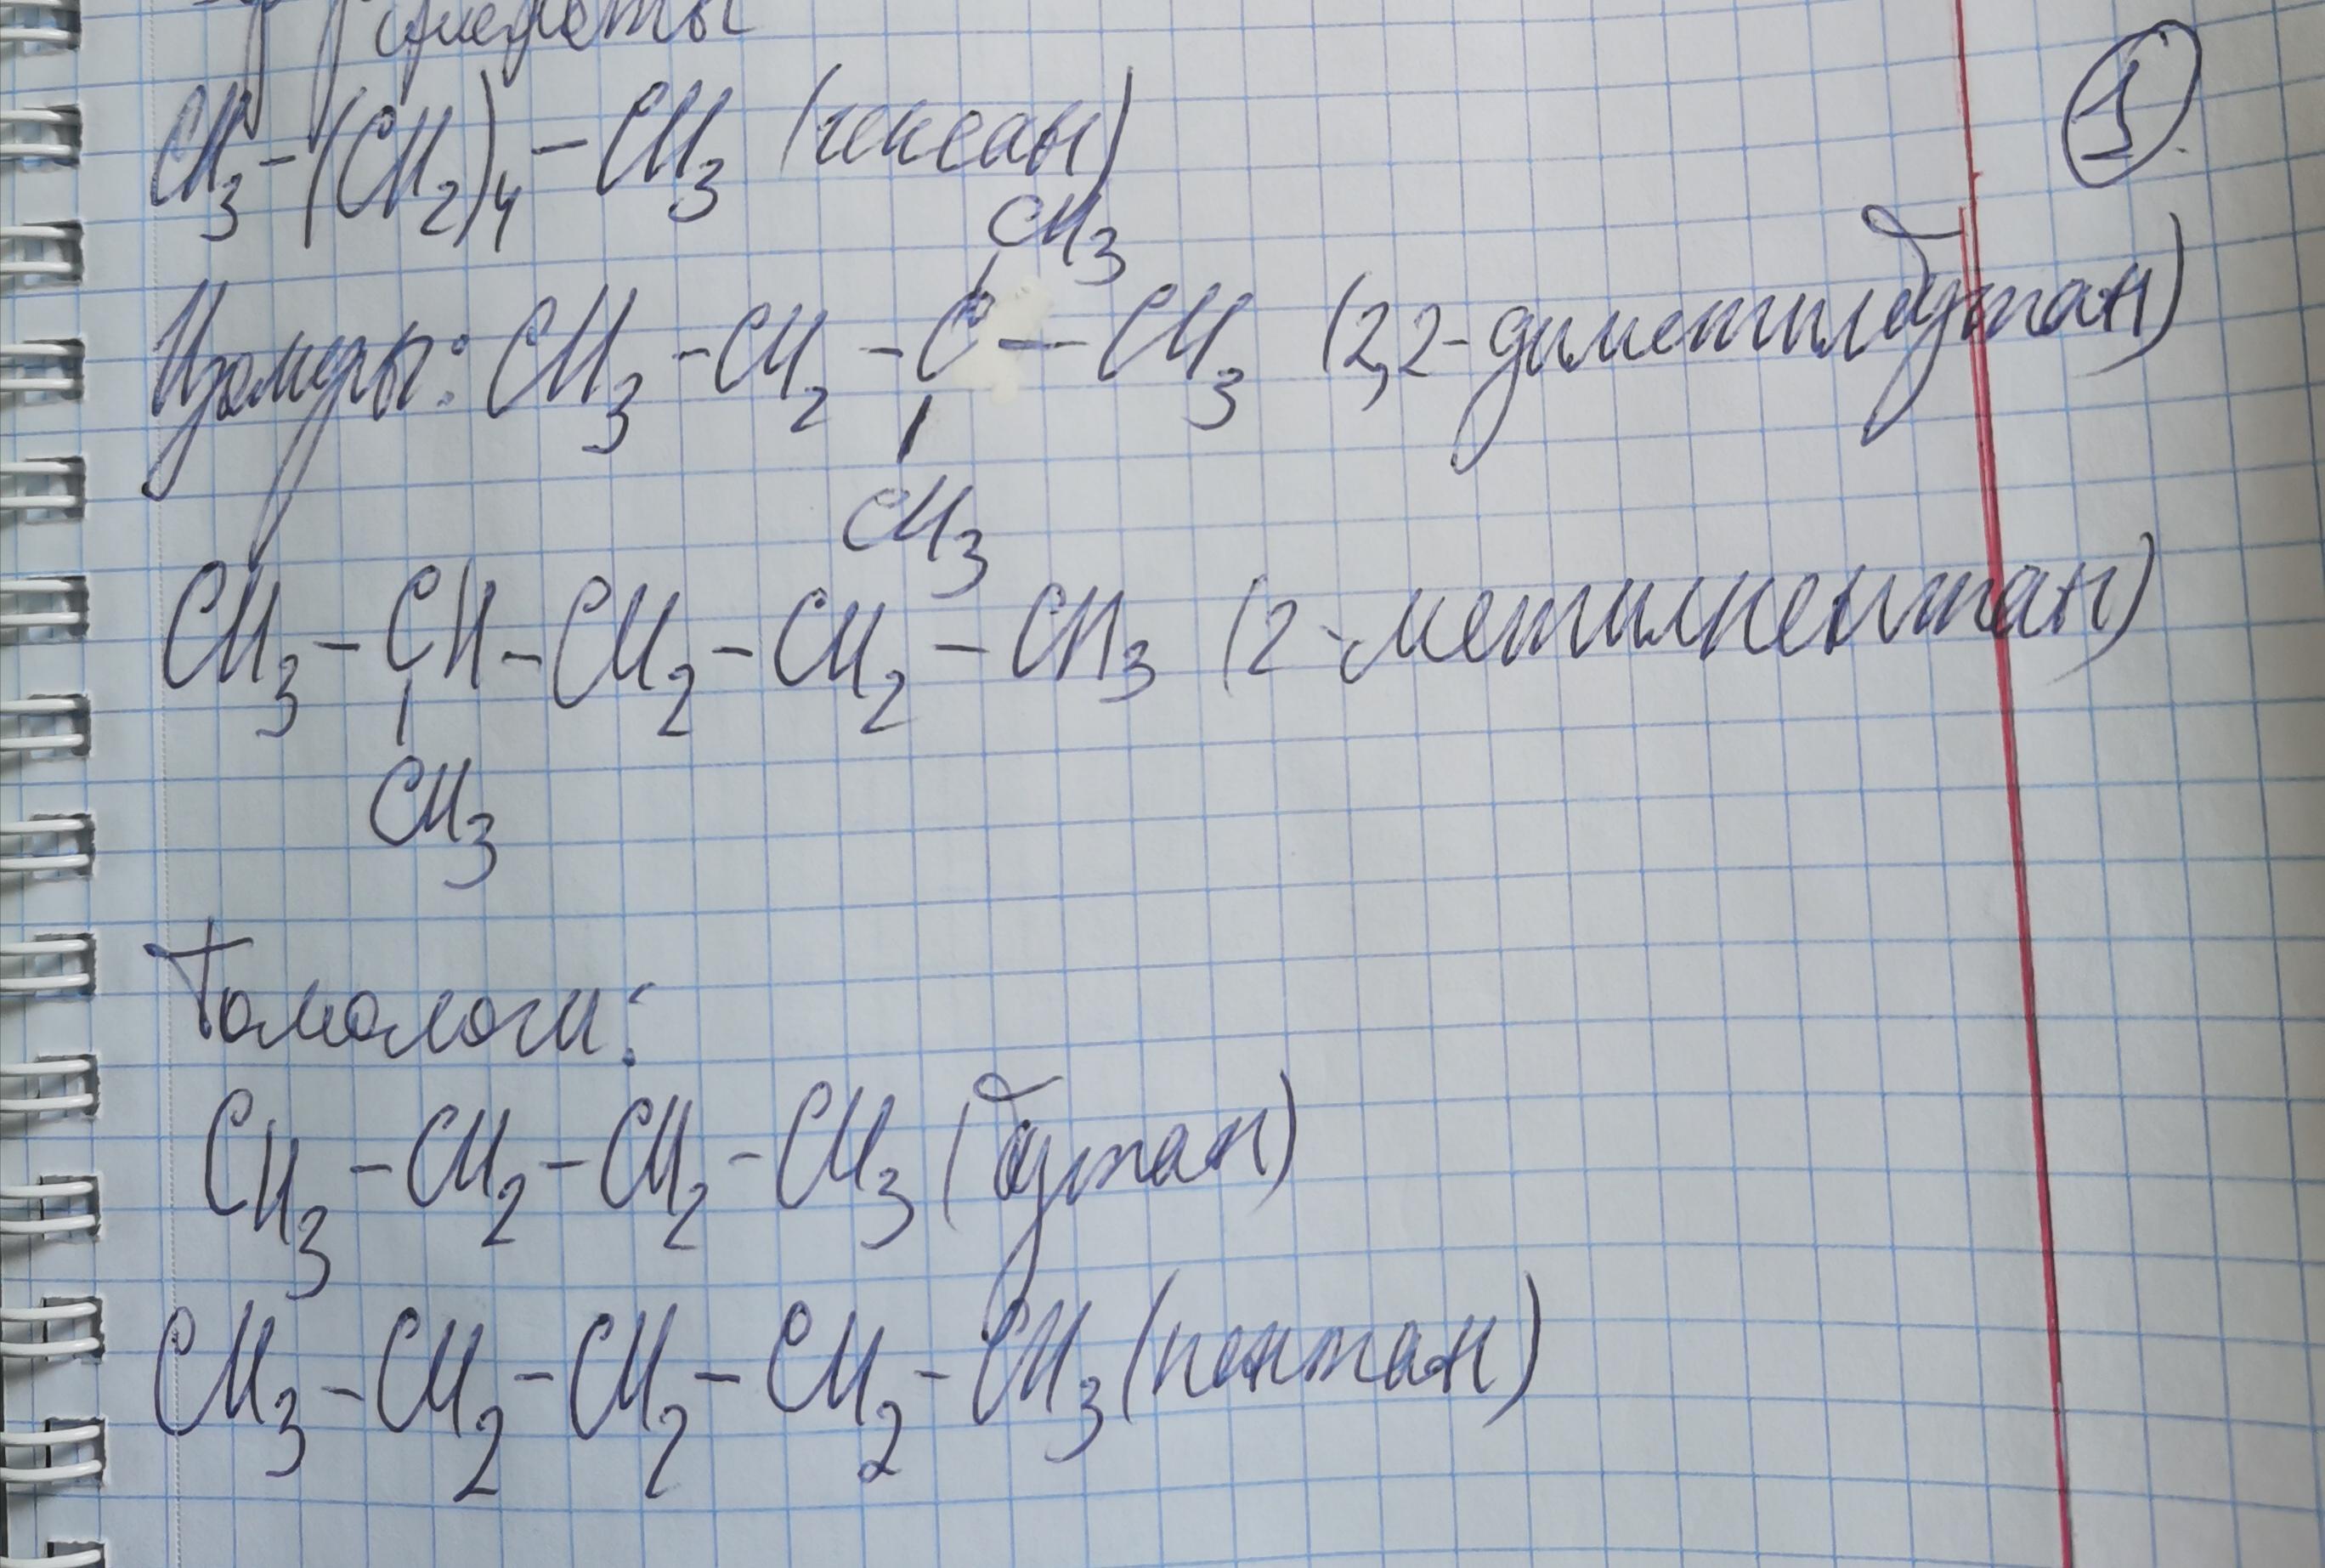 ①
CH₃-(CH₂)₄-CH₃ (гексан)
CH₃
Изомеры: CH₃-CH₂-C-CH₃ (2,2-диметилбутан)
CH₃
CH₃-CH-CH₂-CH₂-CH₃ (2-метилпентан)
CH₃
Гомологи:
CH₃-CH₂-CH₂-CH₃ (бутан)
CH₃-CH₂-CH₂-CH₂-CH₃ (пентан)